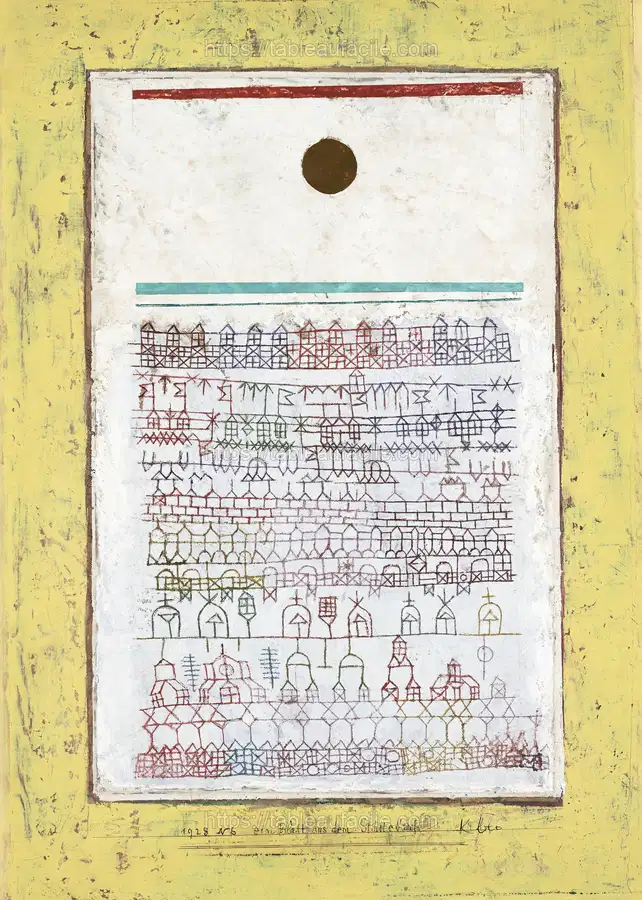 https://tableaufacile.com
https://tableaufacile.com
https://tableaufacile.com
1928 N6 ein Blatt aus dem Städtebuch Klee